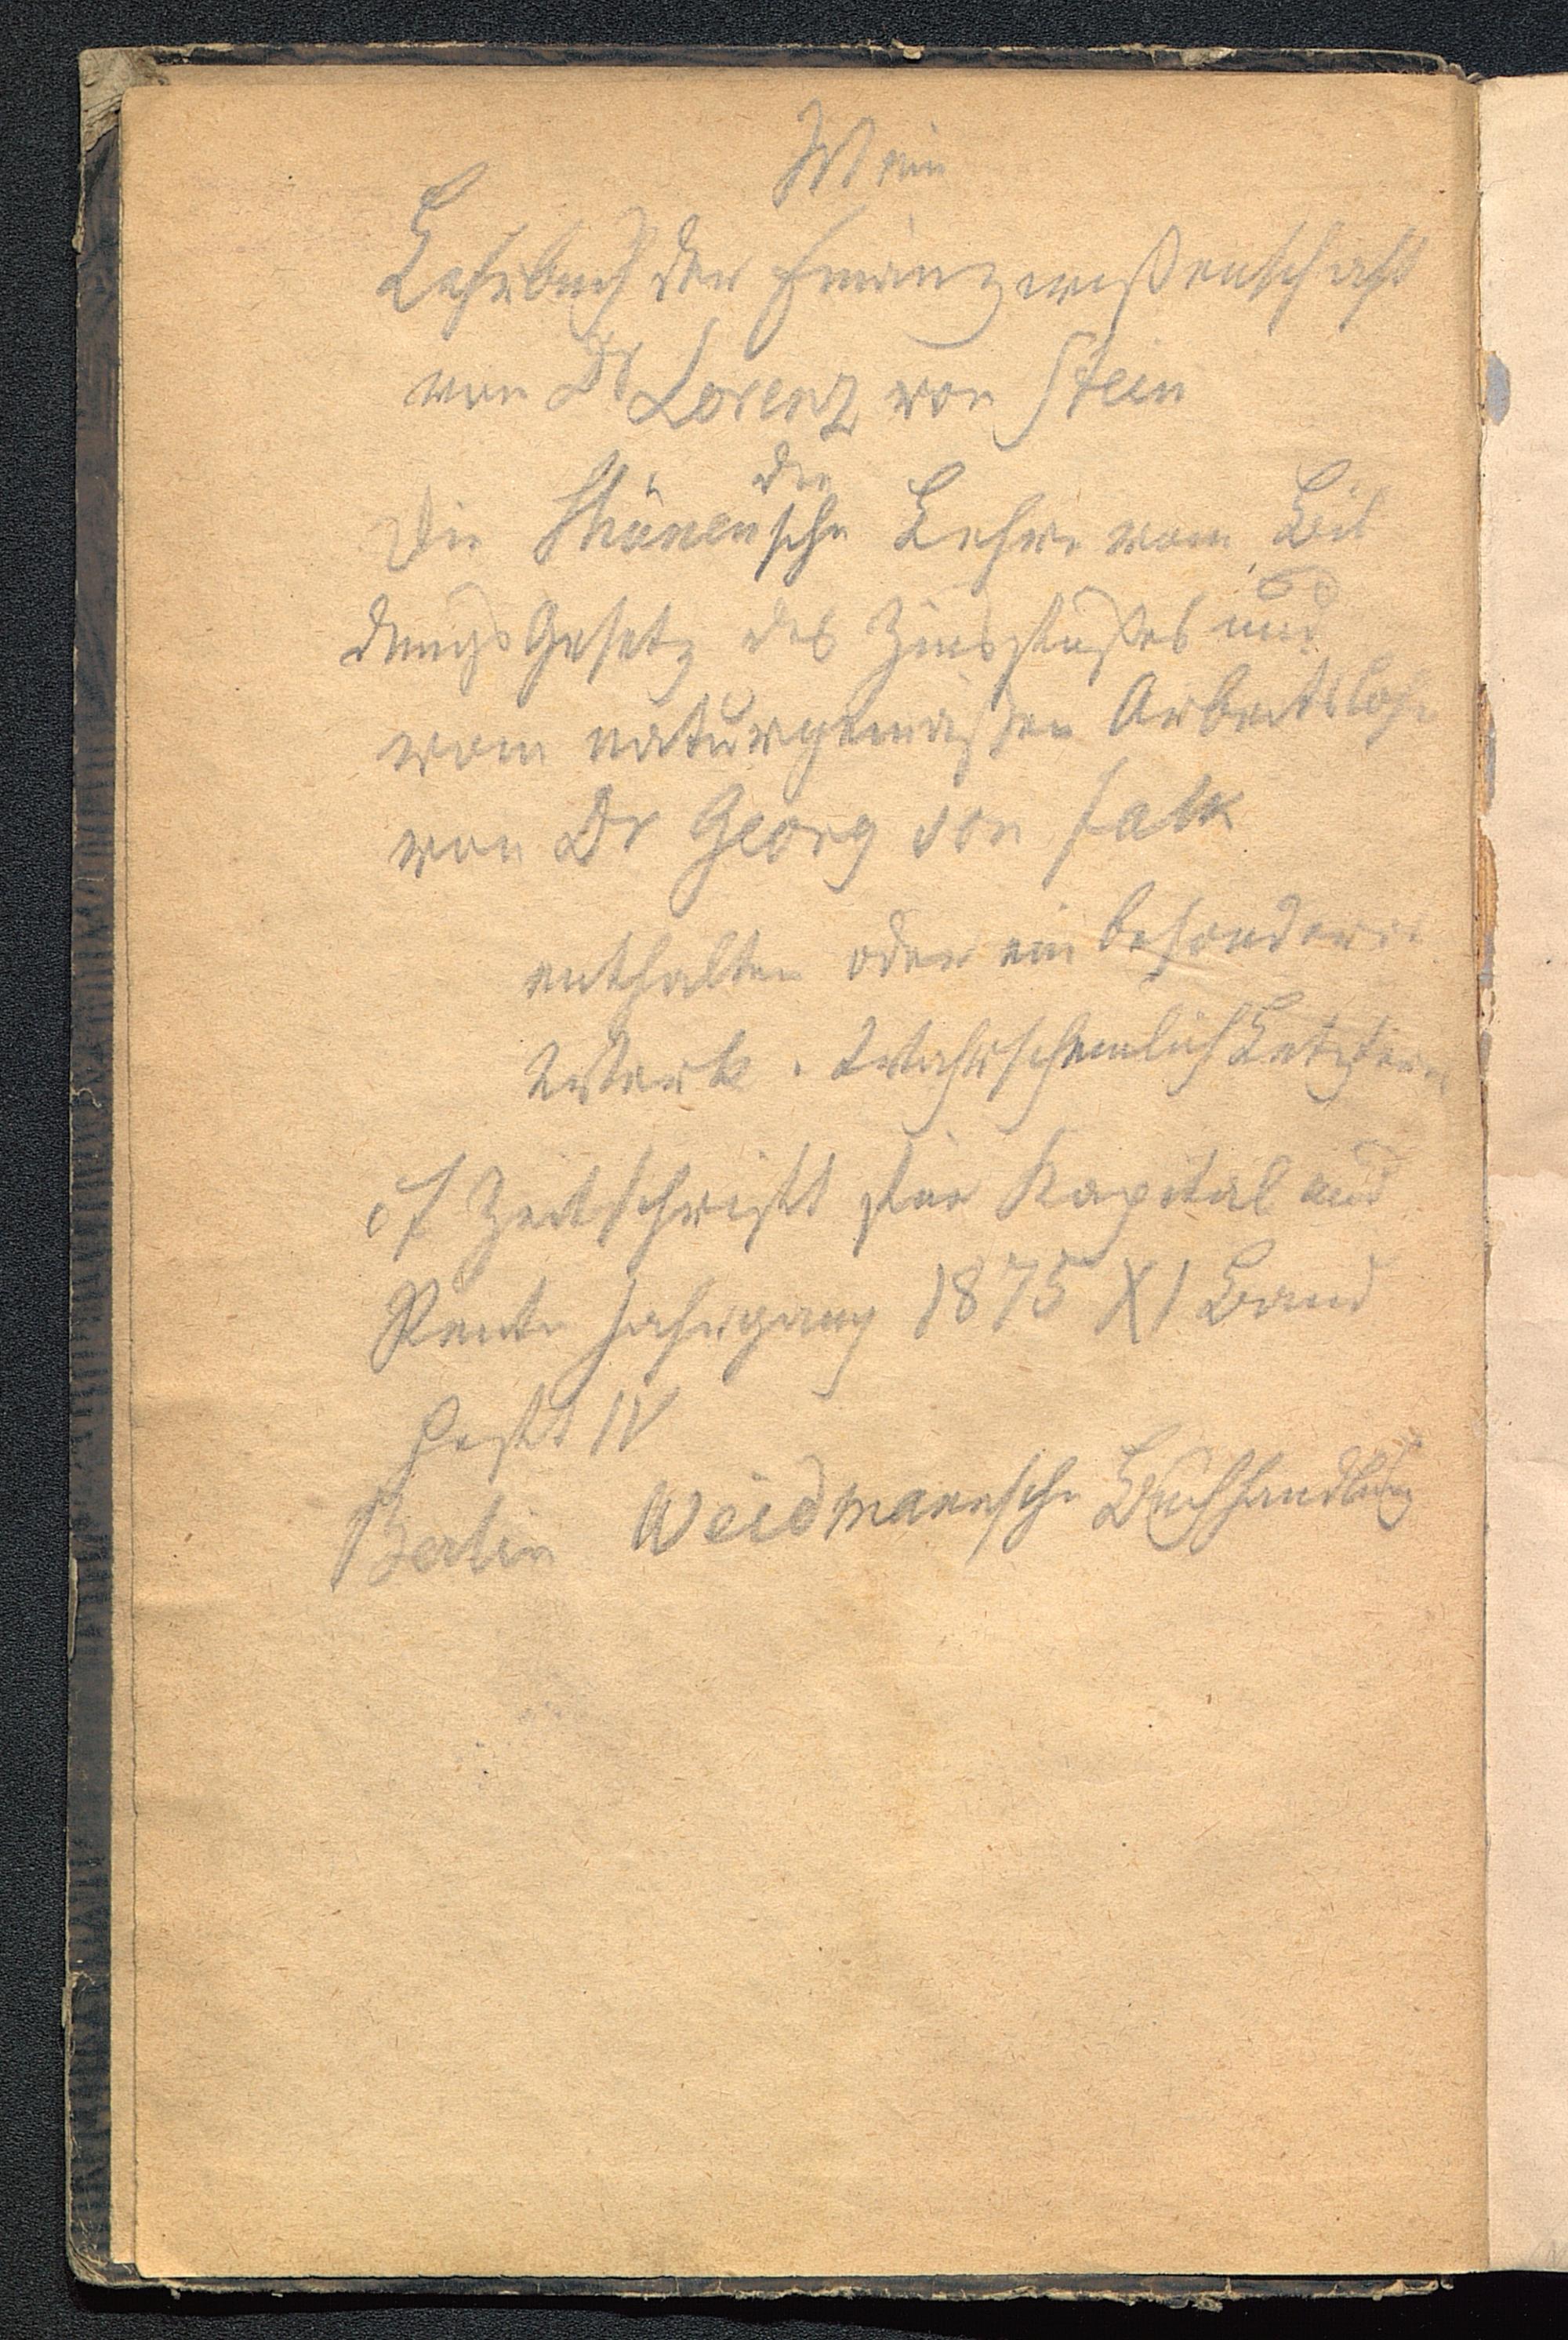 Lehrbuch der Finanzwißenschaft
von Dr Lorenz von Stein
die
Die Thünensche Lehre vom Bil
dungs Gesetz des Zinsfußes und
vom naturgemäßen Arbeitslohn
von Dr Georg von Falk
enthalten oder ein besonderes
Werk. Wahrscheinlich Letzteres
cf Zeitschrift für Kapital und
Rente Jahrgang 1875 XI Band
Heft IV
Berlin Weidmannsche Buchhandlung